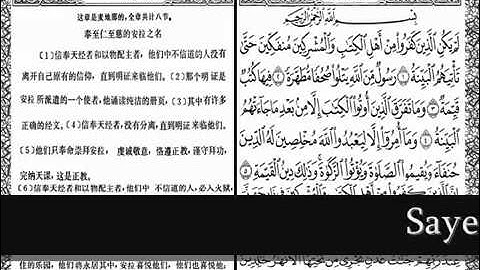 这章是麦地那的,全章共计八节。
奉至仁至慈的安拉之名
(1)信奉天经者和以物配主者,他们中不信道的人没有
离开自己原有的信仰,直到明证来临他们。(2)那个明 证是
安拉所派遣的一个使者,他诵读纯洁的册页,(3)其中有许多
正确的经文。(4)信奉天经者,没有分离,直到明证来临他们。
(5)他们只奉命崇拜安拉, 虔诚敬意,恪遵正教,谨守拜功,
完纳天课,这是正教。
(6)信奉天经者和以物配主者,他们中 不信道的人,必入火狱,
住的乐园,他们将永居其中,安拉喜悦他们,他们也喜悦他;
بِسْمِ اللَّهِ الرَّحْمَٰنِ الرَّحِيمِ
لَمْ يَكُنِ الَّذِينَ كَفَرُوا مِنْ أَهْلِ الْكِتَٰبِ وَالْمُشْرِكِينَ مُنفَكِّينَ حَتَّىٰ
تَأْتِيَهُمُ الْبَيِّنَةُ ۝١ رَسُولٌ مِّنَ اللَّهِ يَتْلُوا صُحُفًا مُّطَهَّرَةً ۝٢ فِيهَا كُتُبٌ
قَيِّمَةٌ ۝٣ وَمَا تَفَرَّقَ الَّذِينَ أُوتُوا الْكِتَٰبَ إِلَّا مِنۢ بَعْدِ مَا جَاءَتْهُمُ
الْبَيِّنَةُ ۝٤ وَمَا أُمِرُوا إِلَّا لِيَعْبُدُوا اللَّهَ مُخْلِصِينَ لَهُ الدِّينَ
حُنَفَاءَ وَيُقِيمُوا الصَّلَوٰةَ وَيُؤْتُوا الزَّكَوٰةَ وَذَٰلِكَ دِينُ الْقَيِّمَةِ ۝٥
Saye